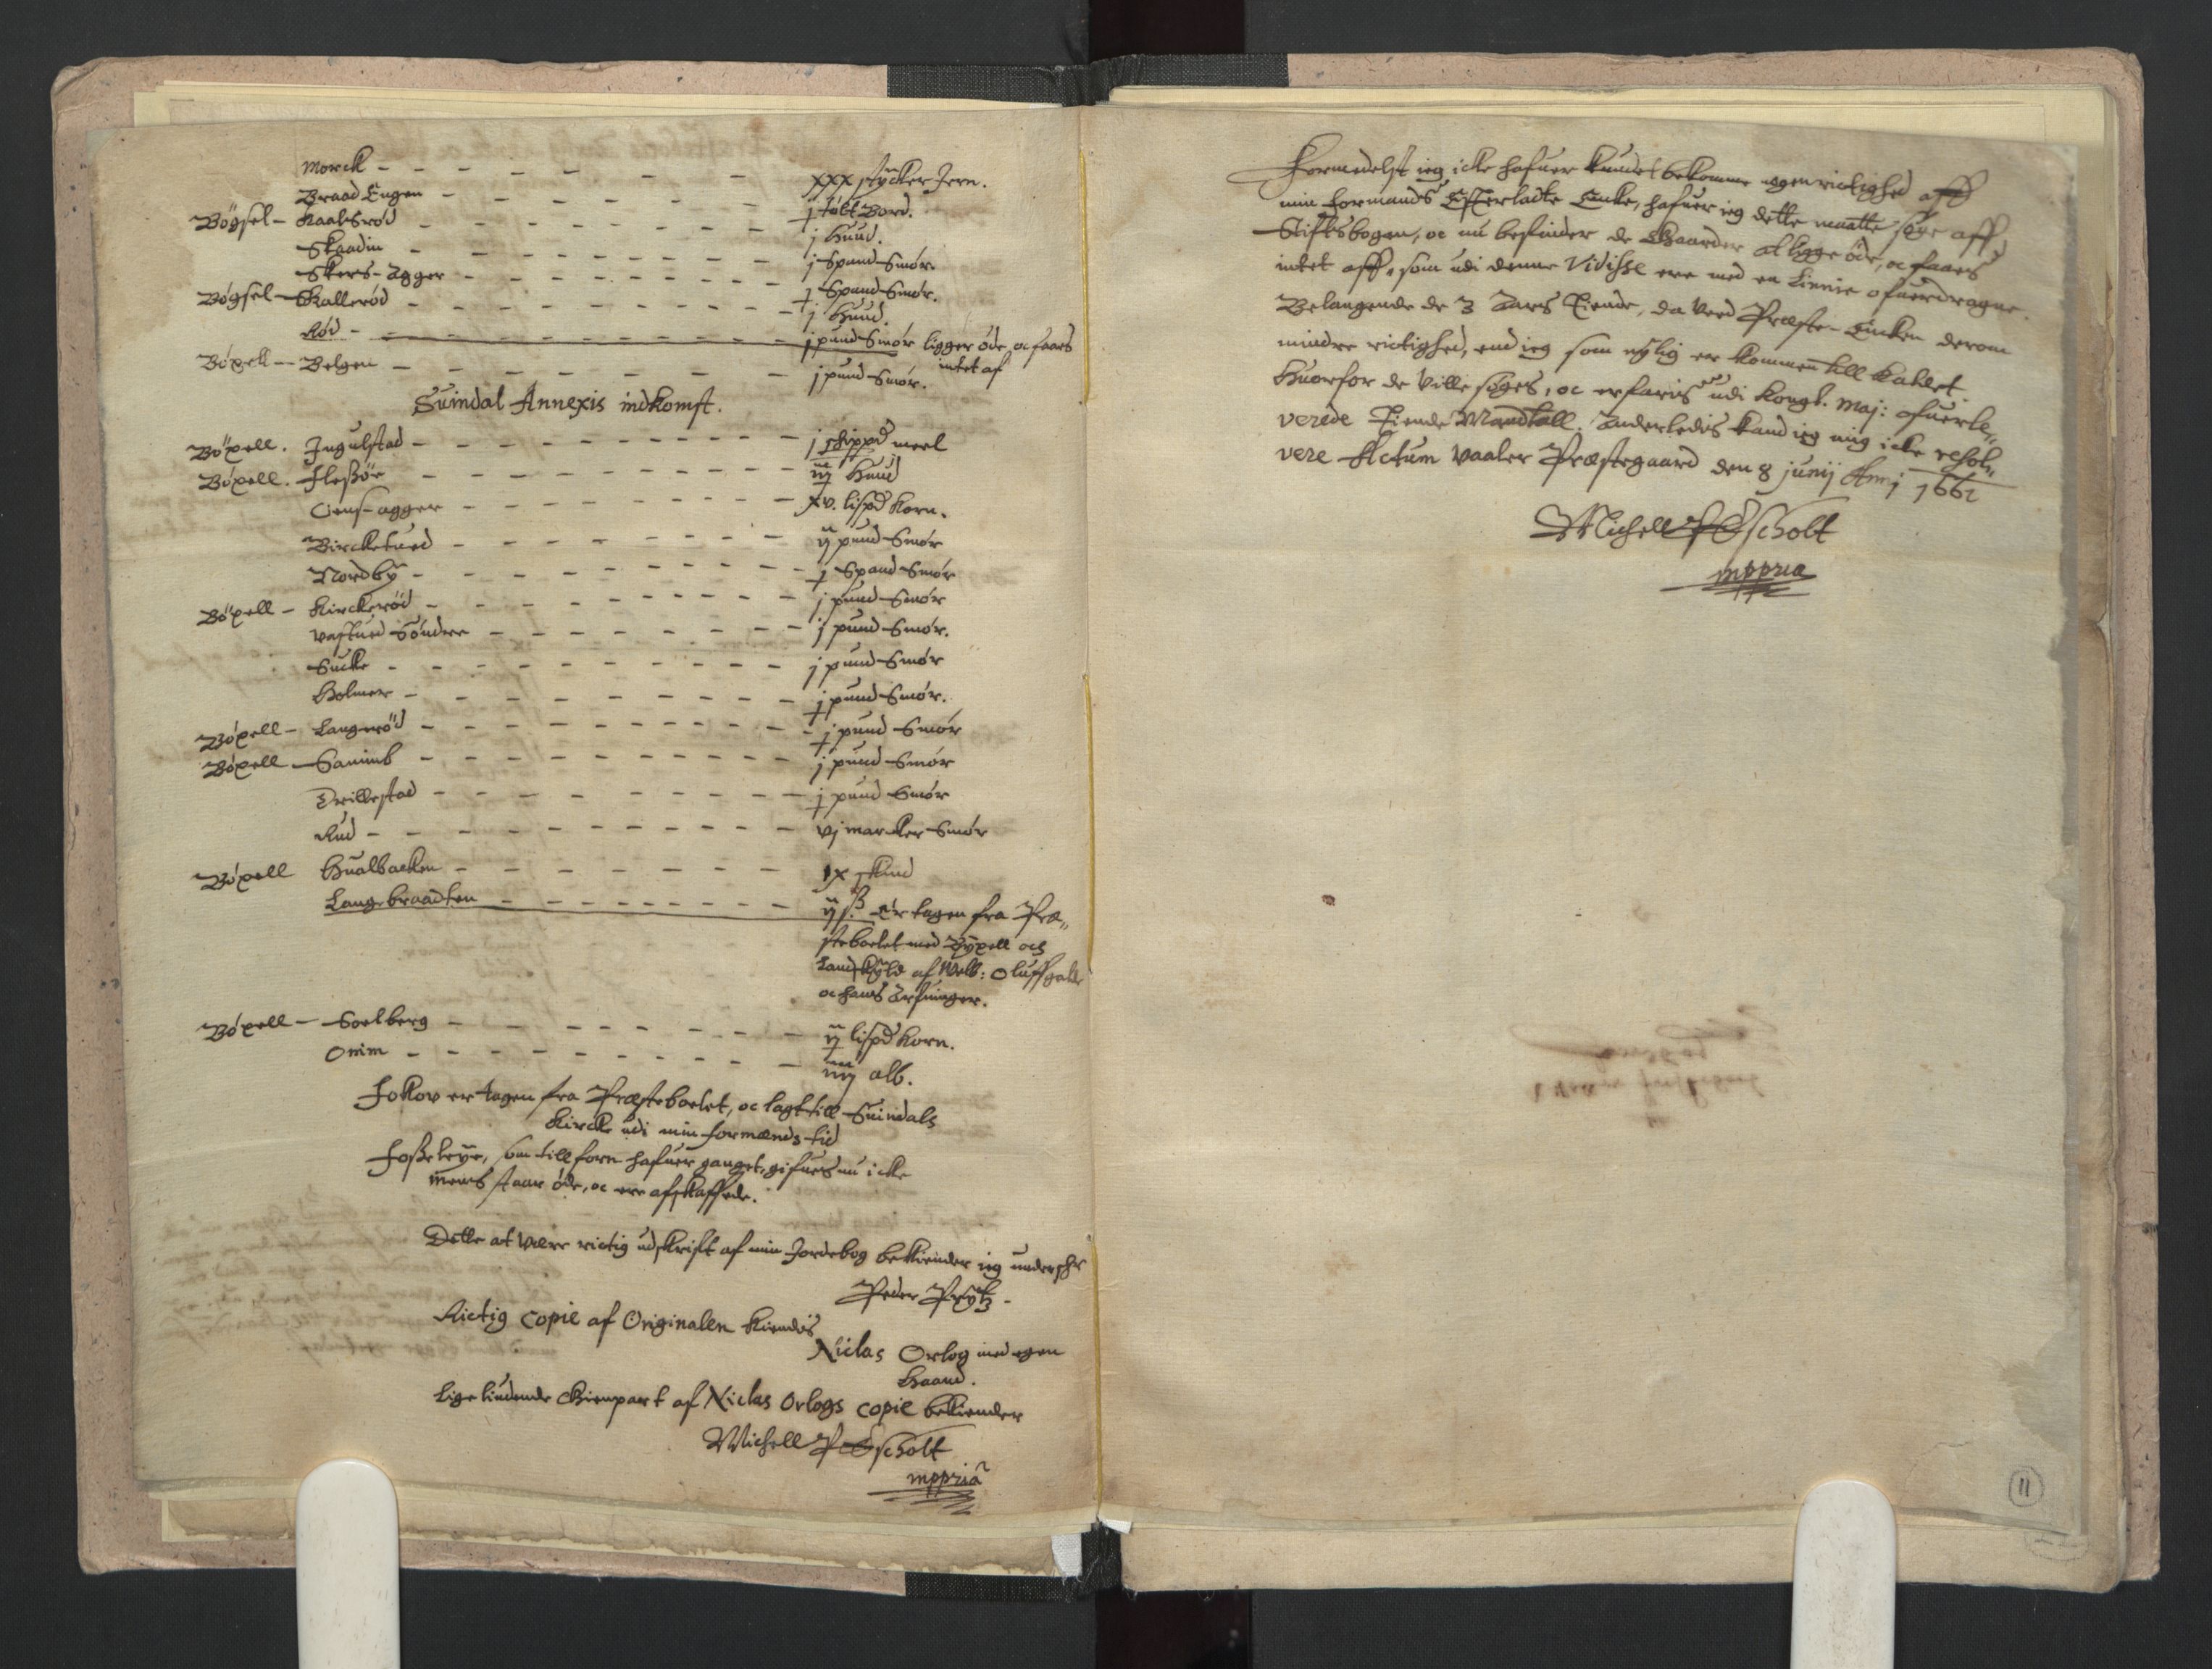 Morck - - - - - - - xxx stÿcker Jern.
Braad Engen - - - - - - ɉ tolt Bord.
Bögsel - Kaalsrød - - - - - - - j Huud.
Skaadin - - - - - - - j Spand Smör.
Skers-Agger - - - - - - - ɉ Spand Smör.
Bögsel - Kallerød - - - - - - - j Huud.
Rød - - - - - - - j pund Smör ligger øde, oc faaes
intet af
Böxell - Belgen - - - - - - - j pund Smör.
Suindal Annexis indkomst.
Böxell. Ingulstad - - - - - - - j skippd meel
Böxell. Flesßör - - - - - - - iij Huud
Oens-agger - - - - - - - xv. lispd Korn.
Bircketued - - - - - - - ij pund Smör
Nordbÿ - - - - - - - ɉ Spand Smör
Böxell - Kirckerød - - - - - - - j pund Smör
Vastued Söndre - - - - - - - j pund Smör.
Sucke - - - - - - - j pund Smör
Holmer - - - - - - - ɉ pund Smör.
Böxell - Langerød - - - - - - - ɉ pund Smör
Böxell - Sanimb - - - - - - - j pund Smör
Trillestad - - - - - - - ɉ pund Smör
Rud - - - - - - - vj marcker Smör
Böxell Hualbacken - - - - - - ix skind
Langebraadten - - - - - - - ij ß. Er tagen fra Præ„
steboelet med Byxell och
Landskÿld af Welb: Oluff galde
oc hans Arfuinger.
Böxell - Soelberg - - - - - - - ij lispd Korn.
Onim - - - - - - - iiij alb.
Follow er tagen fra Præsteboelet, oc lagt till Suindals
Kircke udi min formands tid
Fosseleÿe, som till forn hafuer ganget, gifues nu icke
mens staar øde, oc ere afskaffede.
Dette at være rictig udskrift af min Jordebog bekiender ieg underschr
Peder Prÿtz -
Rictig Copie af Originalen kiendis
Niclas Orlog med egen
Haand.
Lige liudende Gienpart af Niclas Orlogs copie bekiender
Michell P Escholt
mppria
Formedelst ieg icke hafuer kundet bekomme egen rictighed aff
min Formands Efterladte Encke, hafuer ieg dette maatte søge aff
Stiftsbogen, oc nu befinder de Gaarder at ligge øde, oc faaes
intet aff, som udi denne Vidisse ere med en Linnie ofuerdragne.
Belangende de 3 Aars Tiende, da veed Præste-Encken derom
mindre rictighed, end ieg som nÿlig er kommen till Kaldet.
Huorfor de ville søges, oc erfaris udi Kongl. Maj: ofuerle„
verede Tiende Mandtall. Anderledis kand ieg mig icke resol„
vere Actum Vaaler Præstegaard den 8 junij Anni 1661
Michell P Escholt
mppria
11